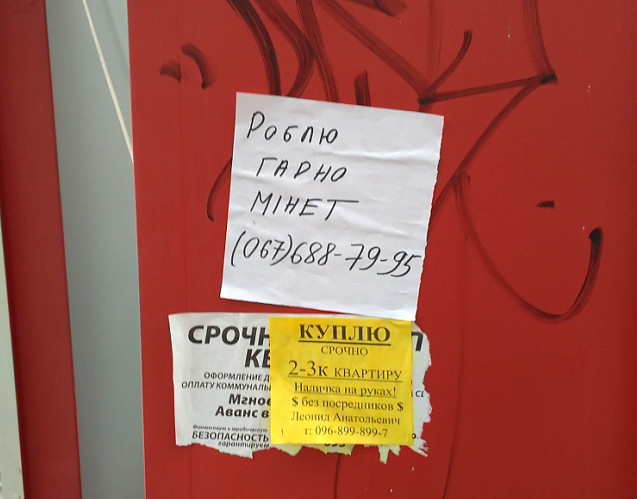 РОБЛЮ
ГАРНО
МІНЕТ
(067)688-79-95
СРОЧН
КВ
ОФОРМЛЕНИЕ Д
ОПЛАТУ КОММУНАЛЬ
Мгнов
Аванс в
БЕЗОПАСНОСТЬ
гарантируем
КУПЛЮ
СРОЧНО
2-3к КВАРТИРУ
Наличка на руках!
$ без посредников $
Леонид Анатольевич
т: 096-899-899-7